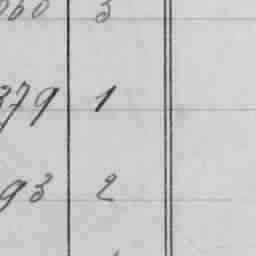 060 3
379 1
93 2